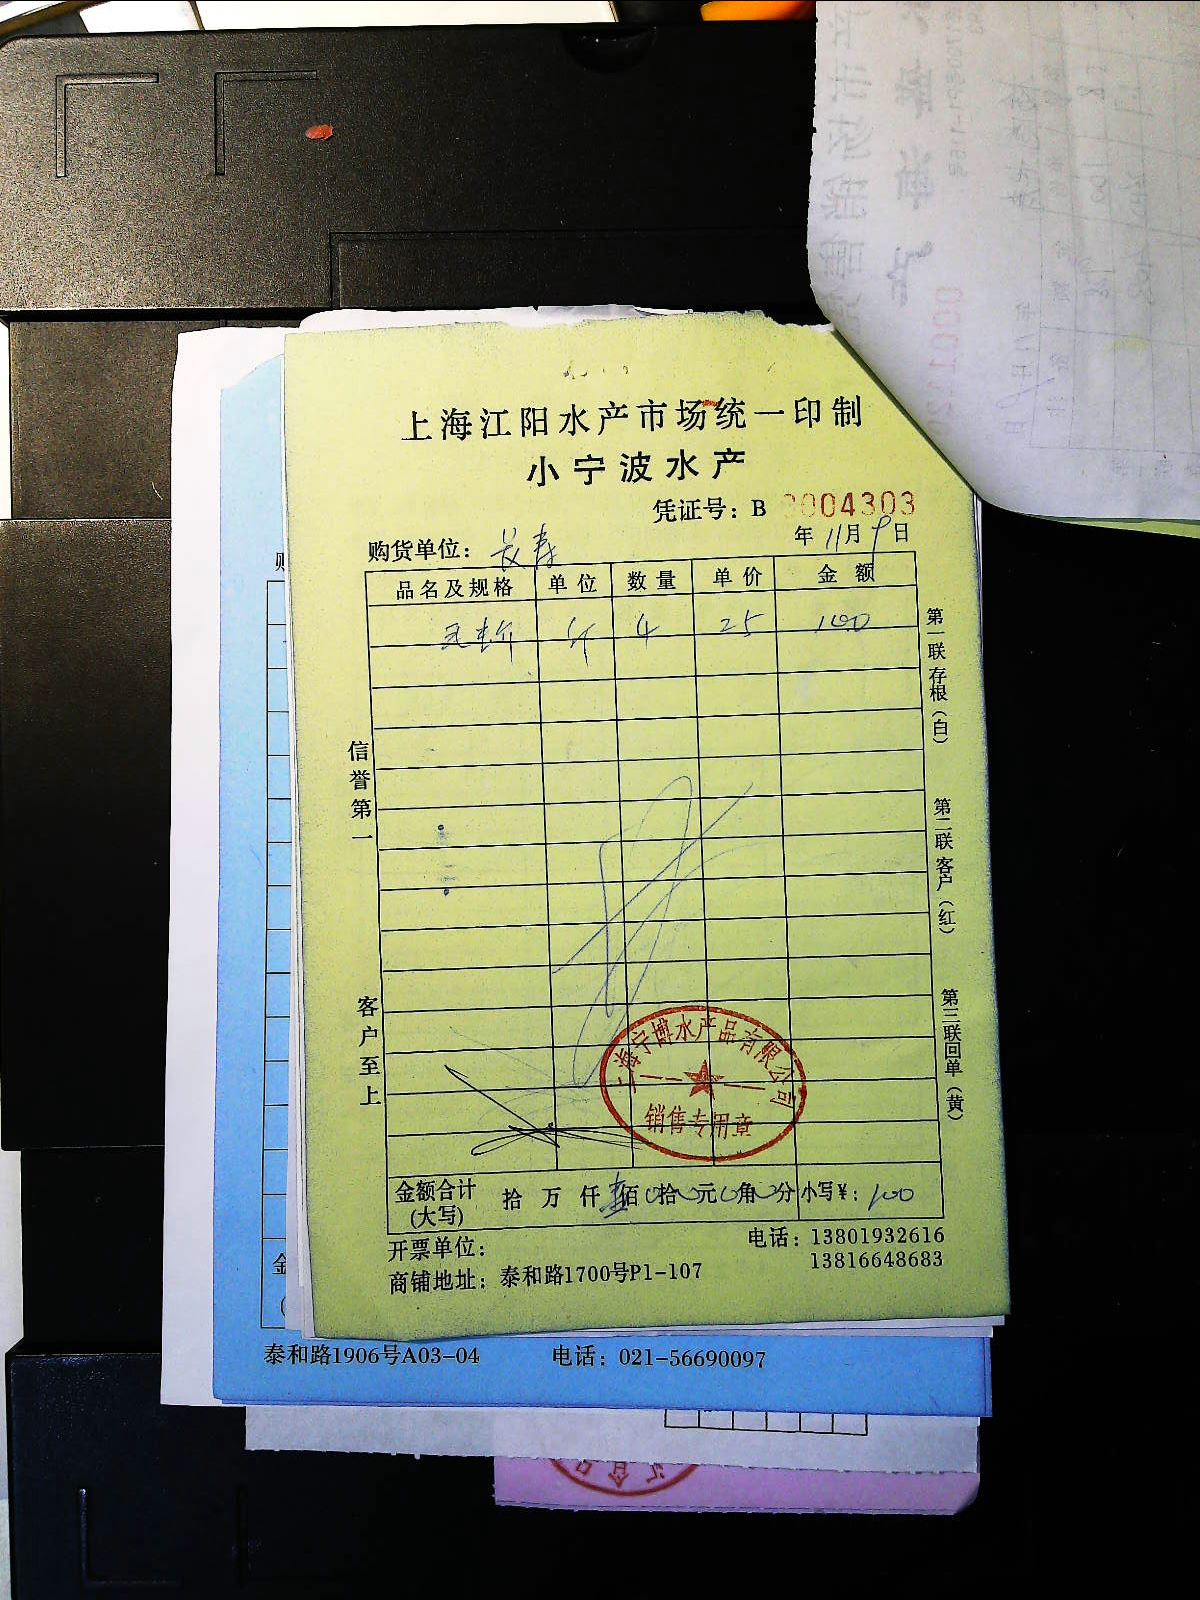 上海江阳水产市场统一印制
小宁波水产
凭证号：B 0004303
购货单位：长寿 年 11月 9日
品名及规格 单位 数量 单价 金额
斤 4 25 100
信誉第一
客户至上
第一联存根（白）
第二联客户（红）
第三联回单（黄）
上海宁博水产品有限公司
销售专用章
金额合计 拾 万 仟 壹佰 0拾 0元 0角 0分 小写¥：100
(大写)
开票单位： 电话：13801932616
13816648683
商铺地址：泰和路1700号P1-107
购
金
泰和路1906号A03-04 电话：021-56690097